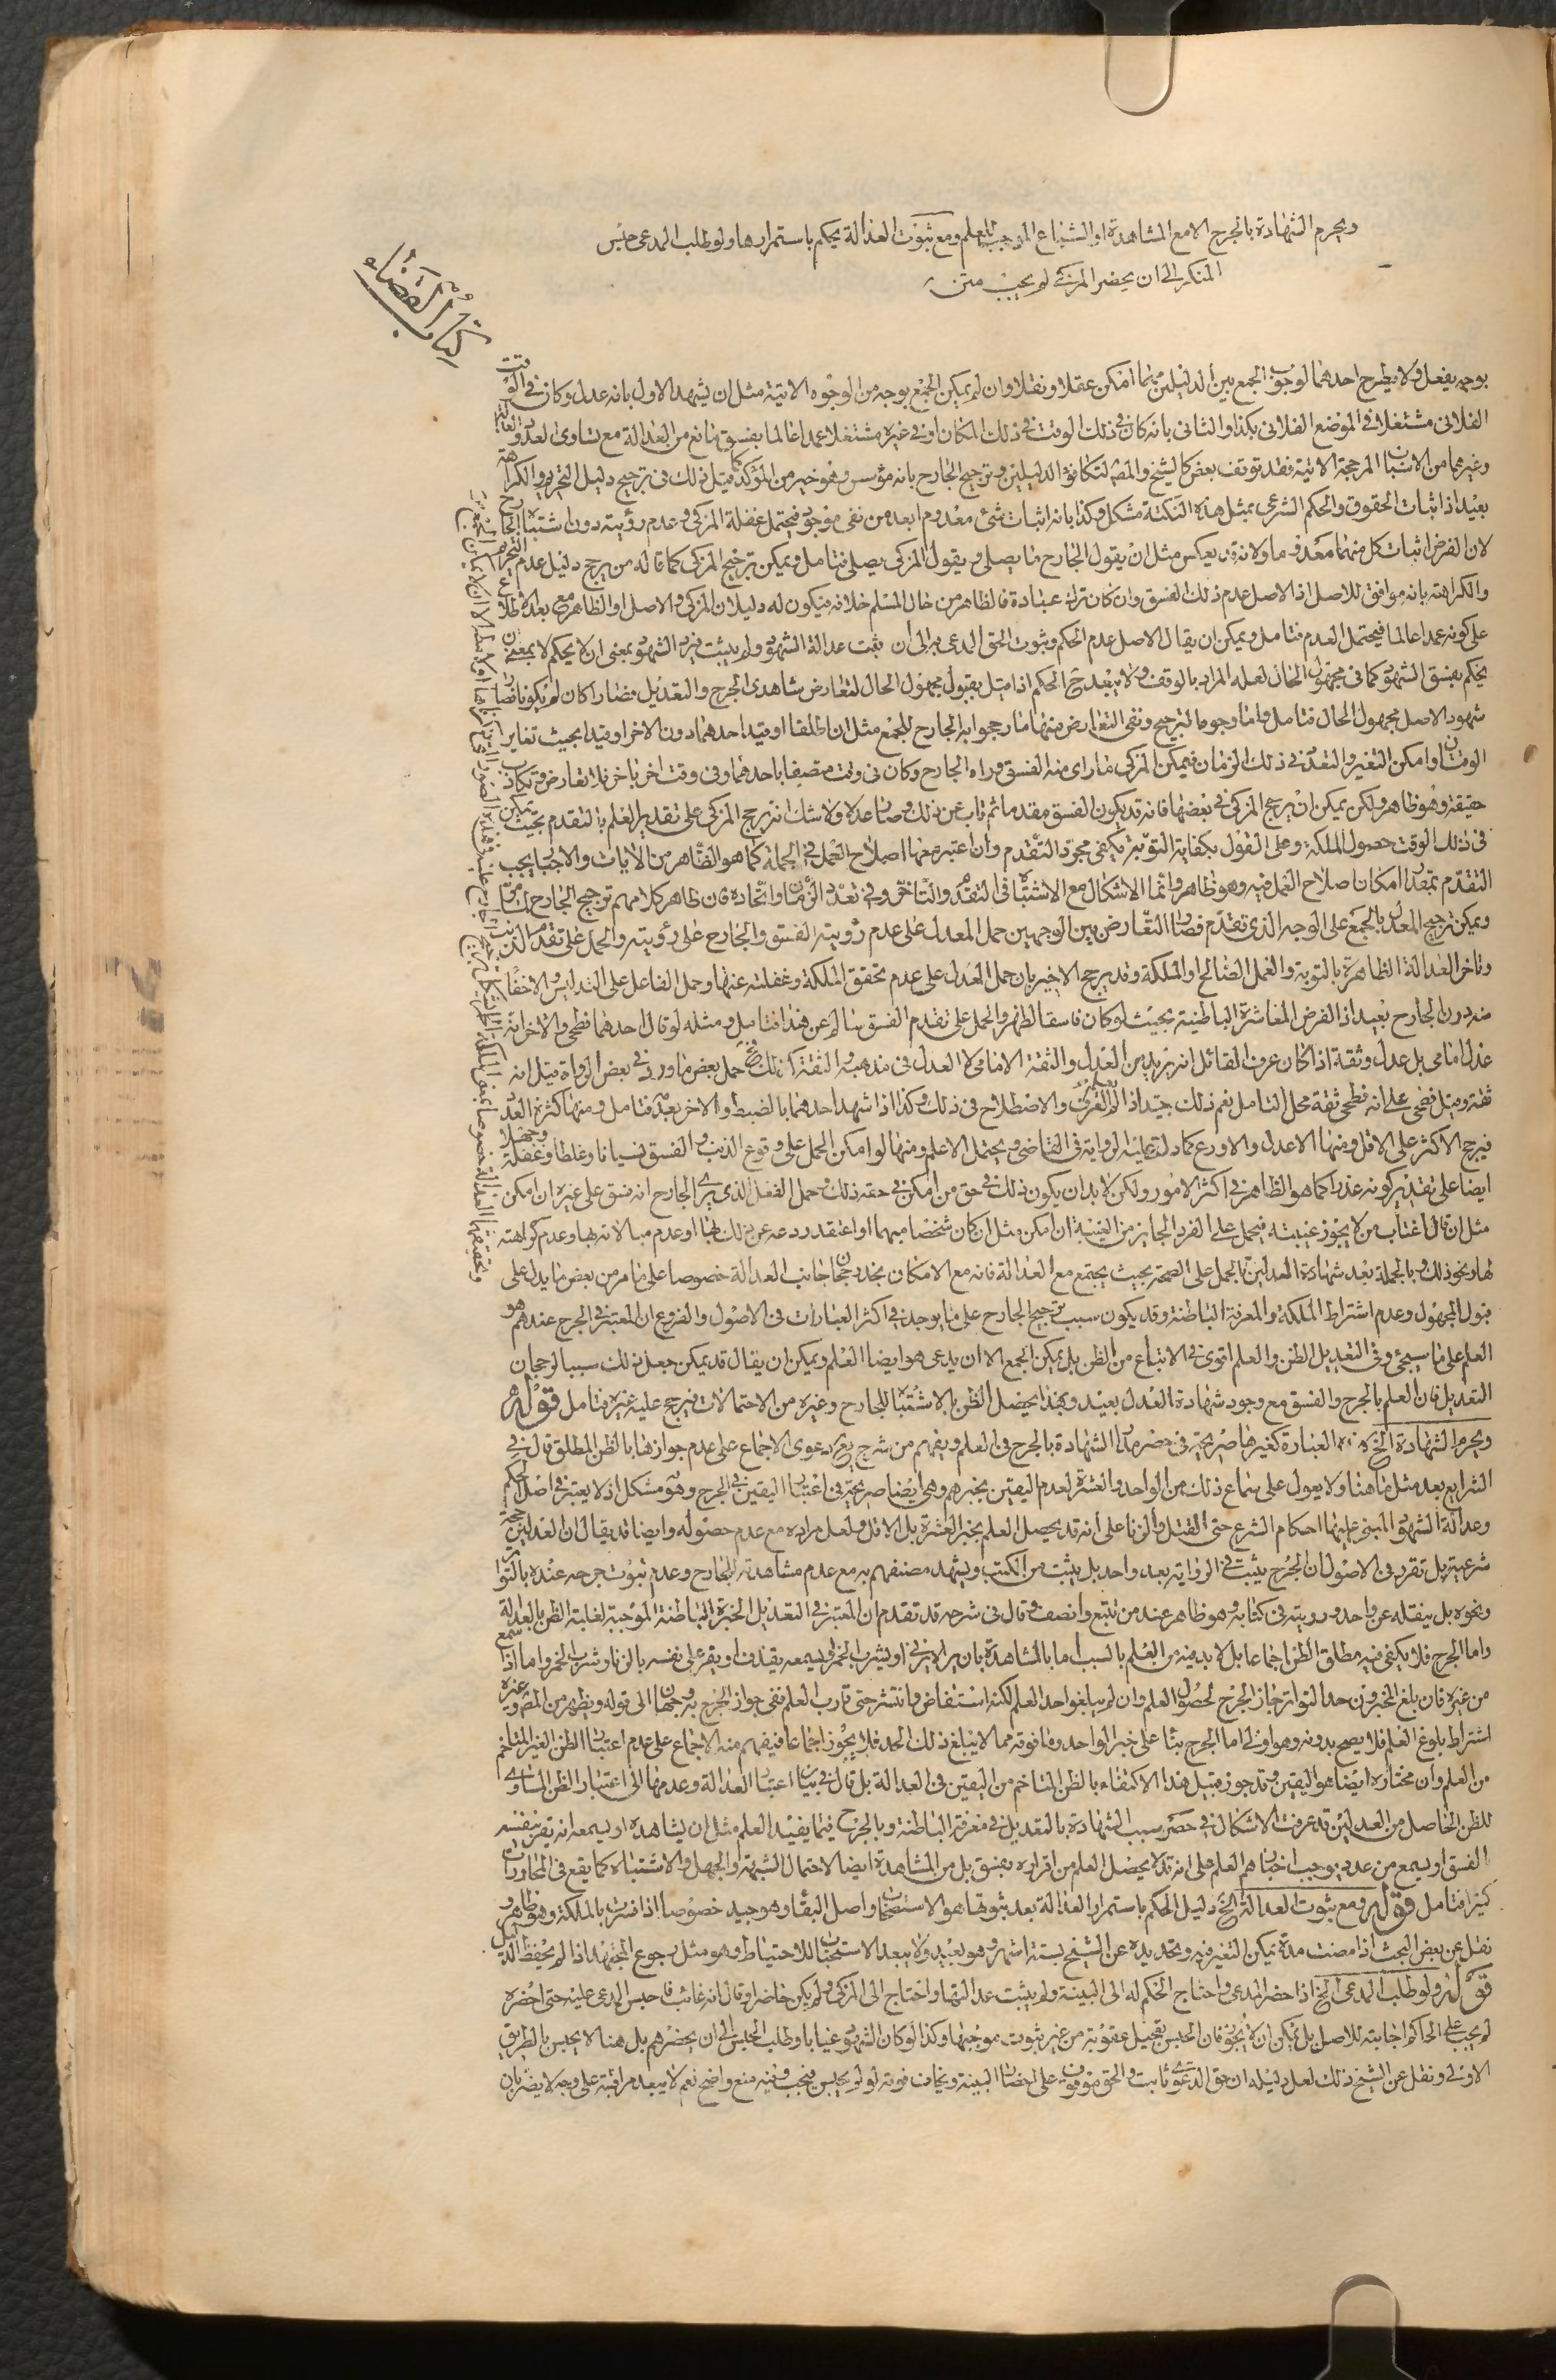 ويحرم الشهادة بالجرح الا مع المشاهدة او الشياع الموجب للعلم ومع ثبوت العدالة يحكم باستمرارها ولو طلب المدعى حبس
المنكر الى ان يحضر المزكى لم يجب متن
كتاب القضاء
بوجه يفعل ولا يطرح احدهما لوجوب الجمع بين الدليلين مهما امكن عقلا ونقلا وان لم يمكن الجمع بوجه من الوجوه الاتية مثل ان يشهد الاول بانه عدل وكان في الوقت
الفلانى مشتغلا في الموضع الفلانى بكذا والثانى بانه كان في ذلك الوقت في ذلك المكان او في غيره مشتغلا عمدا عالما بفسق مانع من العدالة مع تساوى العدد والعدالة
وغيرهما من الاسباب المرجحة الاتية فقد توقف بعض كالشيخ والمصـ لتكافؤ الدليلين وترجيح الجارح بانه مؤسس وهو خير من المؤكد كما قيل ذلك فى ترجيح دليل التحريم والكراهة
بعيد اذ اثبات الحقوق والحكم الشرعى بمثل هذه النكتة مشكل وكذا بانه اثبات شئ معدوم ابعد من نفى موجود فيحتمل غفلة المزكى وعدم رؤيته دون اشتباه الجارح
لان الفرض اثبات كل منهما معدوما ولانه قد يعكس مثل ان يقول الجارح ما يصلى ويقول المزكى يصلى فتامل ويمكن ترجيح المزكى كما قاله من يرجح دليل عدم التحريم
والكراهة بانه موافق للاصل اذ الاصل عدم ذلك الفسق وان كان ترك عبادة فالظاهر من حال المسلم خلافه فيكون له دليلان المزكى والاصل او الظاهر مع بعد الاطلاع
على كونه عمدا عالما فيحتمل العدم فتامل ويمكن ان يقال الاصل عدم الحكم وثبوت الحق المدعى به الى ان يثبت عدالة الشهود ولم يثبت فيرد الشهود بمعنى ان لا يحكم لا بمعنى ان
يحكم بفسق الشهود كما فى مجهول الحال لعله المراد بالوقف ولا يبعد ح الحكم اذا قيل بقبول مجهول الحال لتعارض شاهدى الجرح والتعديل فصارا كان لم يكونا فصار
شهود الاصل مجهول الحال فتامل واما وجوه الترجيح ونفى التعارض فمنها ما رجحوا به الجارح للجمع مثل ان اطلقا او قيد احدهما دون الاخر او قيدا بحيث تغاير
الوقتان او امكن التغير والتعدد في ذلك الزمان فيمكن المزكى ما راى منه الفسق وراه الجارح وكان فى وقت متصفا باحدهما وفى وقت اخر باخر فلا تعارض ولا تكاذب
حقيقة وهو ظاهر ولكن يمكن ان يرجح المزكى في بعضها فانه قد يكون الفسق مقدما ثم تاب عن ذلك وصار عدلا ولا شك انه يرجح المزكى على تقدير العلم بالتقدم بحيث يمكن
فى ذلك الوقت حصول الملكة وعلى القول بكفاية التوبة يكفى مجرد التقدم وان اعتبر معها اصلاح العمل في الجملة كما هو الظاهر من الايات والاخبار يجب
التقدم بمقدار امكان اصلاح العمل فيه وهو ظاهر وانما الاشكال مع الاشتباه فى التقدم والتاخر وفي تعدد الزمان واتحاده فان ظاهر كلامهم ترجيح الجارح لما مر
ويمكن ترجيح المعدل بالجمع على الوجه الذى تقدم فصار التعارض بين الوجهين حمل المعدل على عدم رؤيته الفسق والجارح على رؤيته والحمل على تقدم الذنب
وتاخر العدالة الظاهرة بالتوبة والعمل الصالح او الملكة وقد يرجح الاخير بان حمل العدل على عدم تحقق الملكة وغفلته عنها وحمل الفاعل على التدليس والاخفاء
منه دون الجارح بعيد اذ الفرض المعاشرة الباطنية بحيث لو كان فاسقا لظهر والحمل على تقدم الفسق سالم عن هذا فتامل ومثله لو قال احدهما فطحى والاخر انه
عدل امامى بل عدل وثقة اذا كان عرف القائل انه يريد من العدل والثقة الامامى لا العدل فى مذهبه والثقة كذلك وح حمل بعض ما ورد فى بعض الرواة قيل انه
ثقة وقيل فطحى على انه فطحى ثقة محل التامل نعم ذلك جيد اذا لم يعلم العرف والاصطلاح فى ذلك وكذا اذا شهد احدهما بالضبط والاخر بعدمه فتامل ومنها كثرة العدد
فيرجح الاكثر على الاقل ومنها الاعدل والاورع كما دلت عليه الرواية فى القاضى ويحتمل الاعلم ومنها لو امكن الحمل على وقوع الذنب والفسق نسيانا وغلطا وغفلة وجهلا
ايضا على تقدير كونه عذرا كما هو الظاهر في اكثر الامور ولكن لا بد ان يكون ذلك في حق من امكن في حقه ذلك وحمل الفعل الذى يرى الجارح انه فسق على غيره ان امكن
مثل ان قال اغتاب من لا يجوز غيبته فيحمل على الفرد الجايز من الغيبة ان امكن مثل ان كان شخصا مبهما او اعتقد ردعه عن ذلك بها او عدم مبالاته بها وعدم كراهته
لها ونحو ذلك وبالجملة بعد شهادة العدلين بالحمل على الصحة بحيث يجتمع مع العدالة فانه مع الامكان نجد رجحان جانب العدالة خصوصا على ما مر من بعض ما يدل على
قبول المجهول وعدم اشتراط الملكة والمعرفة الباطنة وقد يكون سبب ترجيح الجارح على ما يوجد في اكثر العبارات فى الاصول والفروع ان المعتبر في الجرح عندهم هو
العلم على ما سيجئ وفى التعديل الظن والعلم اقوى في الاتباع من الظن بل يمكن الجمع الا ان يدعى هو ايضا العلم ويمكن ان يقال قد يمكن جعل ذلك سببا لرجحان
التعديل فان العلم بالجرح والفسق مع وجود شهادة العدل بعيد وبهذا يحصل الظن بالاشتباه للجارح وغيره من الاحتمالات فيرجح عليه غيره فتامل قوله
ويحرم الشهادة الخ العبارة كغيرها صريحة فى حصر مدار الشهادة بالجرح فى العلم ويفهم من شرح يع دعوى الاجماع على عدم جوازها بالظن المطلق قال في
الشرايع بعد مثل ما هنا ولا يعول على سماع ذلك من الواحد والعشرة لعدم اليقين بخبرهم وهى ايضا صريحة فى اعتبار اليقين في الجرح وهو مشكل اذ لا يعتبر فى اصل الحكم
وعدالة الشهود المبنى عليهما احكام الشرع حتى القتل والزنا على انه قد يحصل العلم بخبر العشرة بل الاقل ولعل مراده مع عدم حصوله وايضا قد يقال ان العدلين حجة
شرعية بل تقرر فى الاصول ان الجرح يثبت في الرواية بعدد واحد بل يثبت من الكتب ويشهد مصنفهم به مع عدم مشاهدته للجارح وعدم ثبوت جرحه عنده بالتواتر
ونحوه بل ينقله عن واحد ورويته فى كتابه وهو ظاهر عند من تتبع وانصف وقال فى شرحه قد تقدم ان المعتبر فى التعديل الخبرة الباطنة الموجبة لغلبة الظن بالعدالة
واما الجرح فلا يكفى فيه مطلق الظن اجماعا بل لا بد فيه من العلم بالسبب اما بالمشاهدة بان يراه يزنى او يشرب الخمر او يسمعه يقذف او يقر على نفسه بالزنا وشرب الخمر واما اذا سمع
من غيره فان بلغ المخبرون حد التواتر جاز الجرح لحصول العلم وان لم يبلغوا حد العلم لكنه استفاض وانتشر حتى قارب العلم ففى جواز الجرح به وجهان الى قوله ويظهر من المصـ وغيره
اشتراط بلوغ العلم فلا يصح بدونه وهو اولى اما الجرح بناء على خبر الواحد وما فوقه مما لا يبلغ ذلك الحد فلا يجوز اجماعا فيفهم منه الاجماع على عدم اعتبار الظن الغير المتاخم
من العلم وان مختاره ايضا هو اليقين وقد جوز قبيل هذا الاكتفاء بالظن المتاخم من اليقين فى العدالة بل قال في بيان اعتبار العدالة وعدمها الى اعتبار الظن المساوى
للظن الحاصل من العدلين قد عرفت الاشكال في حصر سبب الشهادة بالتعديل في معرفة الباطنة وبالجرح فيما يفيد العلم مثل ان يشاهده او يسمعه انه تقر بنفسه
الفسق او يسمع من عدد يوجب اخبارهم العلم على انه قد لا يحصل العلم من اقراره بفسق بل من المشاهدة ايضا لاحتمال الشبهة والجهل والاشتباه كما يقع فى المحاورات
كثيرا فتامل قوله ومع ثبوت العدالة الخ دليل الحكم باستمرار العدالة بعد ثبوتها هو الاستصحاب واصل البقاء وهو جيد خصوصا اذا فسرت بالملكة وهو ظاهر و
نقل عن بعض البحث اذا مضت مدة يمكن التغير فيه وتحديده عن الشيخ بستة اشهر وهو بعيد ولا يبعد الاستحباب للاحتياط وهو مثل رجوع المجتهد اذا لم يحفظ الدليل
قوله ولو طلب المدعى الخ اذا حضر المدعى واحتاج الحكم له الى البينة ولم يثبت عدالتها واحتاج الى المزكى ولم يكن حاضرا وقال انه غائب فاحبس المدعى عليه حتى احضره
لم يجب على الحاكم اجابته للاصل بل يمكن ان لا يجوز فان الحبس تعجيل عقوبة من غير ثبوت موجبها وكذا لو كان الشهود غيابا وطلب الحبس الى ان يحضرهم بل هنا لا يحبس بالطريق
الاولى ونقل عن الشيخ ذلك لعل دليله ان حق الدعوى ثابت والحق موقوف على احضار البينة ويخاف فوته لو لم يحبس فيجب وفيه منع واضح نعم لا يبعد مراقبته على وجه لا يضر بان